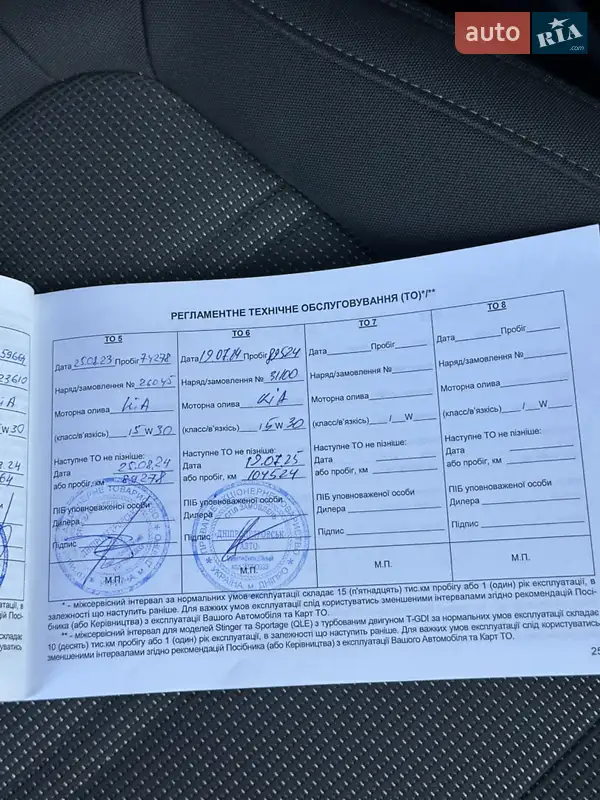 auto RIA.com
5966
23610
W30
РЕГЛАМЕНТНЕ ТЕХНІЧНЕ ОБСЛУГОВУВАННЯ (ТО)*/**
ТО 5
Дата 25.08.23 Пробіг 74278
Наряд/замовлення № 26045
Моторна олива KIA
(класс/в'язкість) /5 W 30
Наступне ТО не пізніше:
Дата 25.08.24
або пробіг, км 89278
ПІБ уповноваженої особи
Дилера
Підпис
М.П.
ТО 6
Дата 19.07.24 Пробіг 89524
Наряд/замовлення № 31100
Моторна олива KIA
(класс/в'язкість) /5 W 30
Наступне ТО не пізніше:
Дата 19.07.25
або пробіг, км 104524
ПІБ уповноваженої особи
Дилера
Підпис
М.П.
ТО 7
Дата Пробіг
Наряд/замовлення №
Моторна олива
(класс/в'язкість) / W
Наступне ТО не пізніше:
Дата
або пробіг, км
ПІБ уповноваженої особи
Дилера
Підпис
М.П.
ТО 8
Дата Пробіг
Наряд/замовлення №
Моторна олива
(класс/в'язкість) / W
Наступне ТО не пізніше:
Дата
або пробіг, км
ПІБ уповноваженої особи
Дилера
Підпис
М.П.
* - міжсервісний інтервал за нормальних умов експлуатації складає 15 (п'ятнадцять) тис.км пробігу або 1 (один) рік експлуатації, в
залежності що наступить раніше. Для важких умов експлуатації слід користуватись зменшеними інтервалами згідно рекомендацій Посі-
бника (або Керівництва) з експлуатації Вашого Автомобіля та Карт ТО.
** - міжсервісний інтервал для моделей Stinger та Sportage (QLE) з турбованим двигуном T-GDI за нормальних умов експлуатації складає
10 (десять) тис.км пробігу або 1 (один) рік експлуатації, в залежності що наступить раніше. Для важких умов експлуатації слід користуватись
зменшеними інтервалами згідно рекомендацій Посібника (або Керівництва) з експлуатації Вашого Автомобіля та Карт ТО.
25